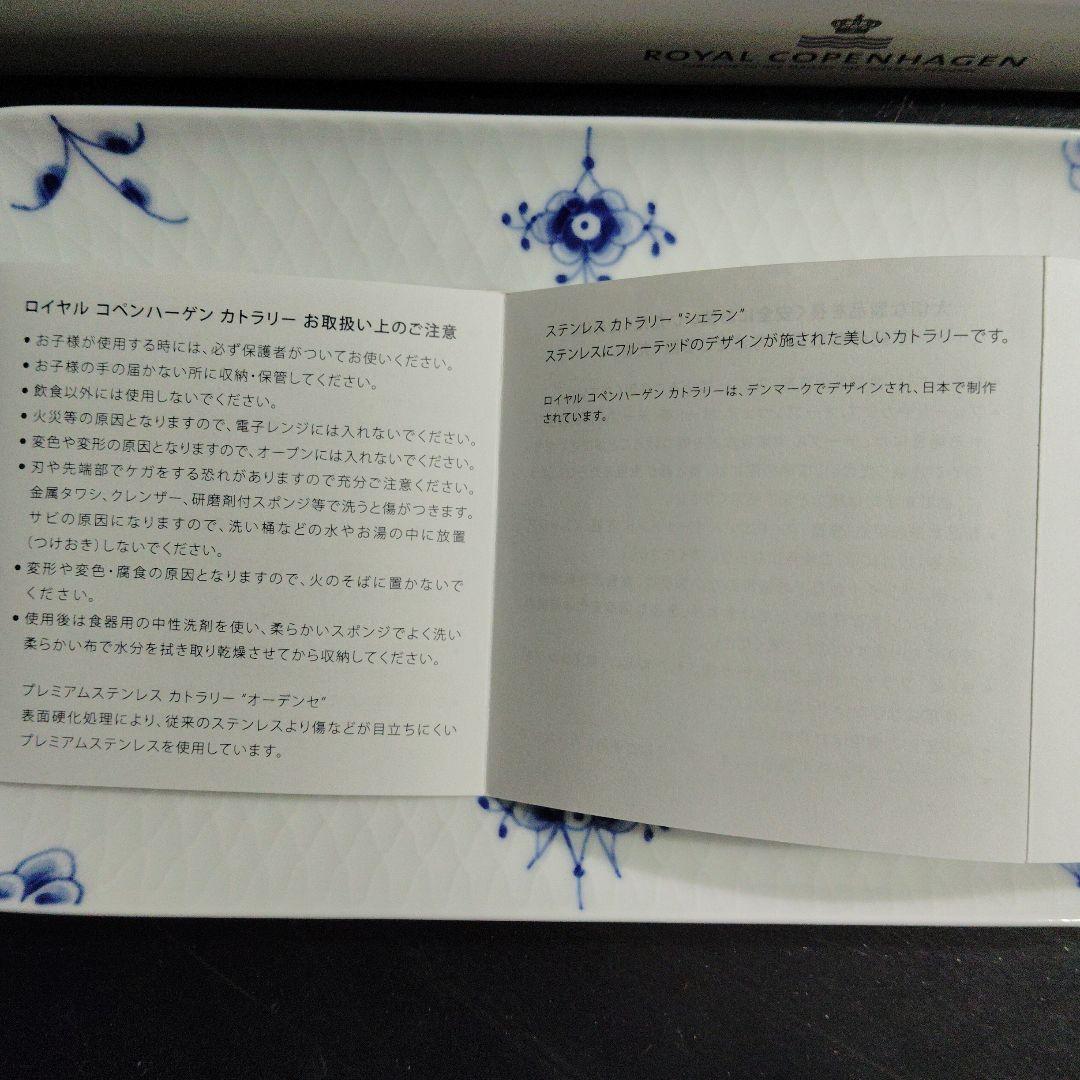 ROYAL COPENHAGEN
ロイヤル コペンハーゲン カトラリー お取扱い上のご注意
• お子様が使用する時には、必ず保護者がついてお使いください。
• お子様の手の届かない所に収納・保管してください。
• 飲食以外には使用しないでください。
• 火災等の原因となりますので、電子レンジには入れないでください。
• 変色や変形の原因となりますので、オーブンには入れないでください。
• 刃や先端部でケガをする恐れがありますので充分ご注意ください。
金属タワシ、クレンザー、研磨剤付スポンジ等で洗うと傷がつきます。
サビの原因になりますので、洗い桶などの水やお湯の中に放置
(つけおき)しないでください。
• 変形や変色・腐食の原因となりますので、火のそばに置かないで
ください。
• 使用後は食器用の中性洗剤を使い、柔らかいスポンジでよく洗い
柔らかい布で水分を拭き取り乾燥させてから収納してください。
プレミアムステンレス カトラリー “オーデンセ”
表面硬化処理により、従来のステンレスより傷などが目立ちにくい
プレミアムステンレスを使用しています。
ステンレス カトラリー “シェラン”
ステンレスにフルーテッドのデザインが施された美しいカトラリーです。
ロイヤル コペンハーゲン カトラリーは、デンマークでデザインされ、日本で制作
されています。